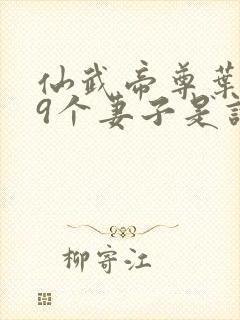 仙武帝尊葉
9个妻子是
柳寄江